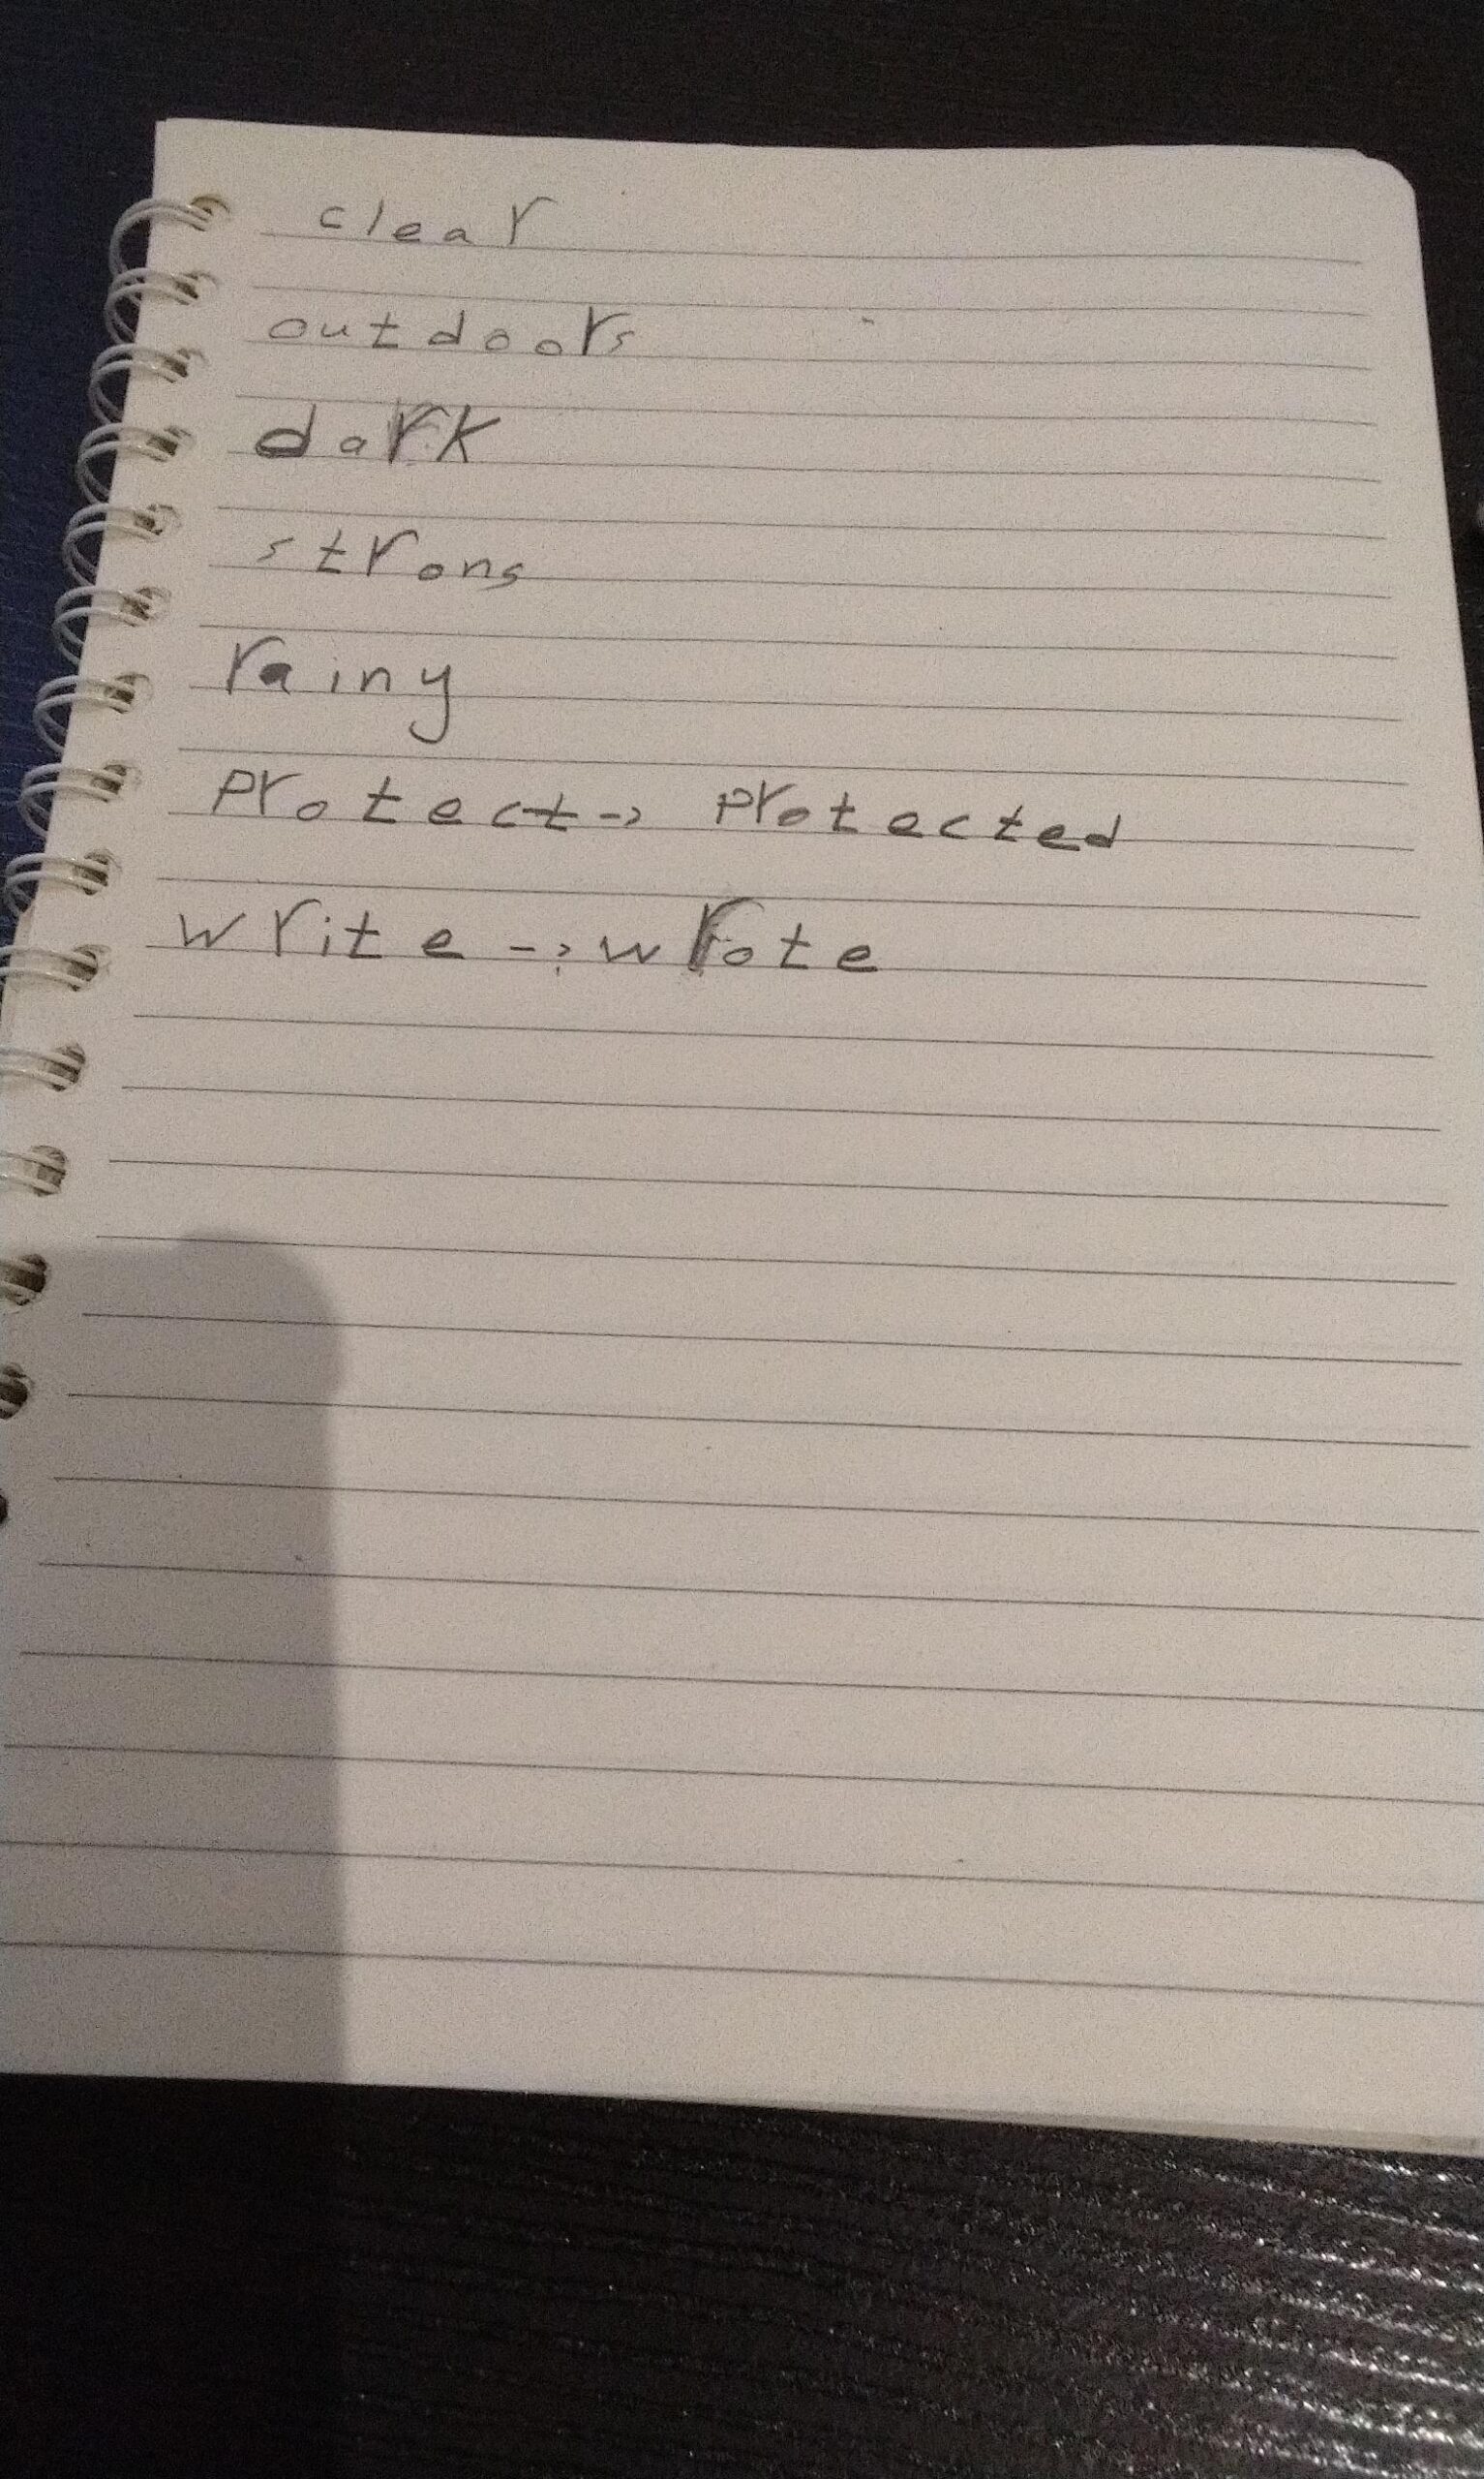 clear
outdoors
dark
strong
rainy
protect -> protected
write -> wrote